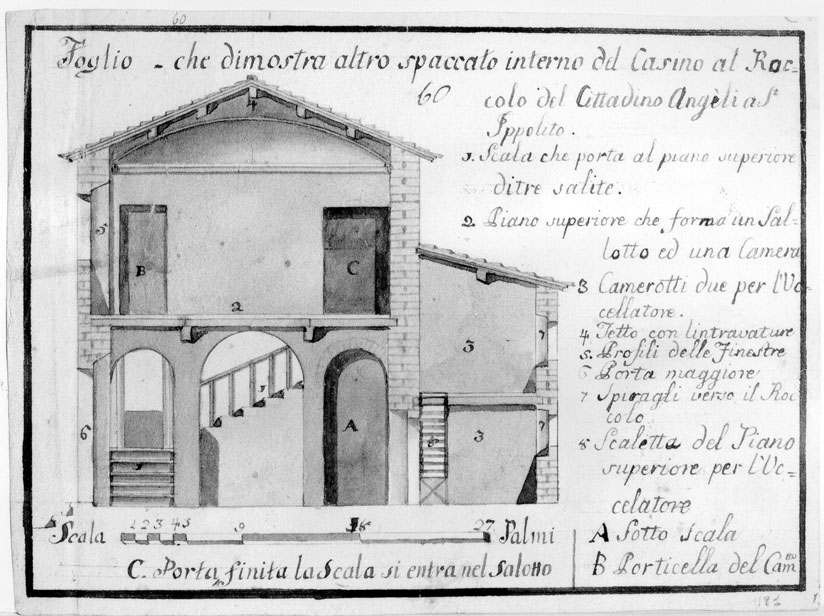 60
Foglio - che dimostra altro spaccato interno del Casino al Roc=
60
colo del Cittadino Angèli a St
Ippolito.
1. Scala che porta al piano superiore
di tre salite.
2 Piano superiore che forma un Sal=
lotto ed una Camera
3 Camerotti due per l'Uc
cellatore.
4 Tetto con lintravature
5. Profili delle Finestre
6 Porta maggiore
7 Spiragli verso il Roc
colo
8 Scaletta del Piano
superiore per l'Uc=
celatore
A Sotto scala
B Porticella del Camno
4
5
B
C
2
3
7
1
6
A
8
3
7
1
Scala 1 2 3 4 5 9 18 27 Palmi
C. Porta finita la Scala si entra nel salotto